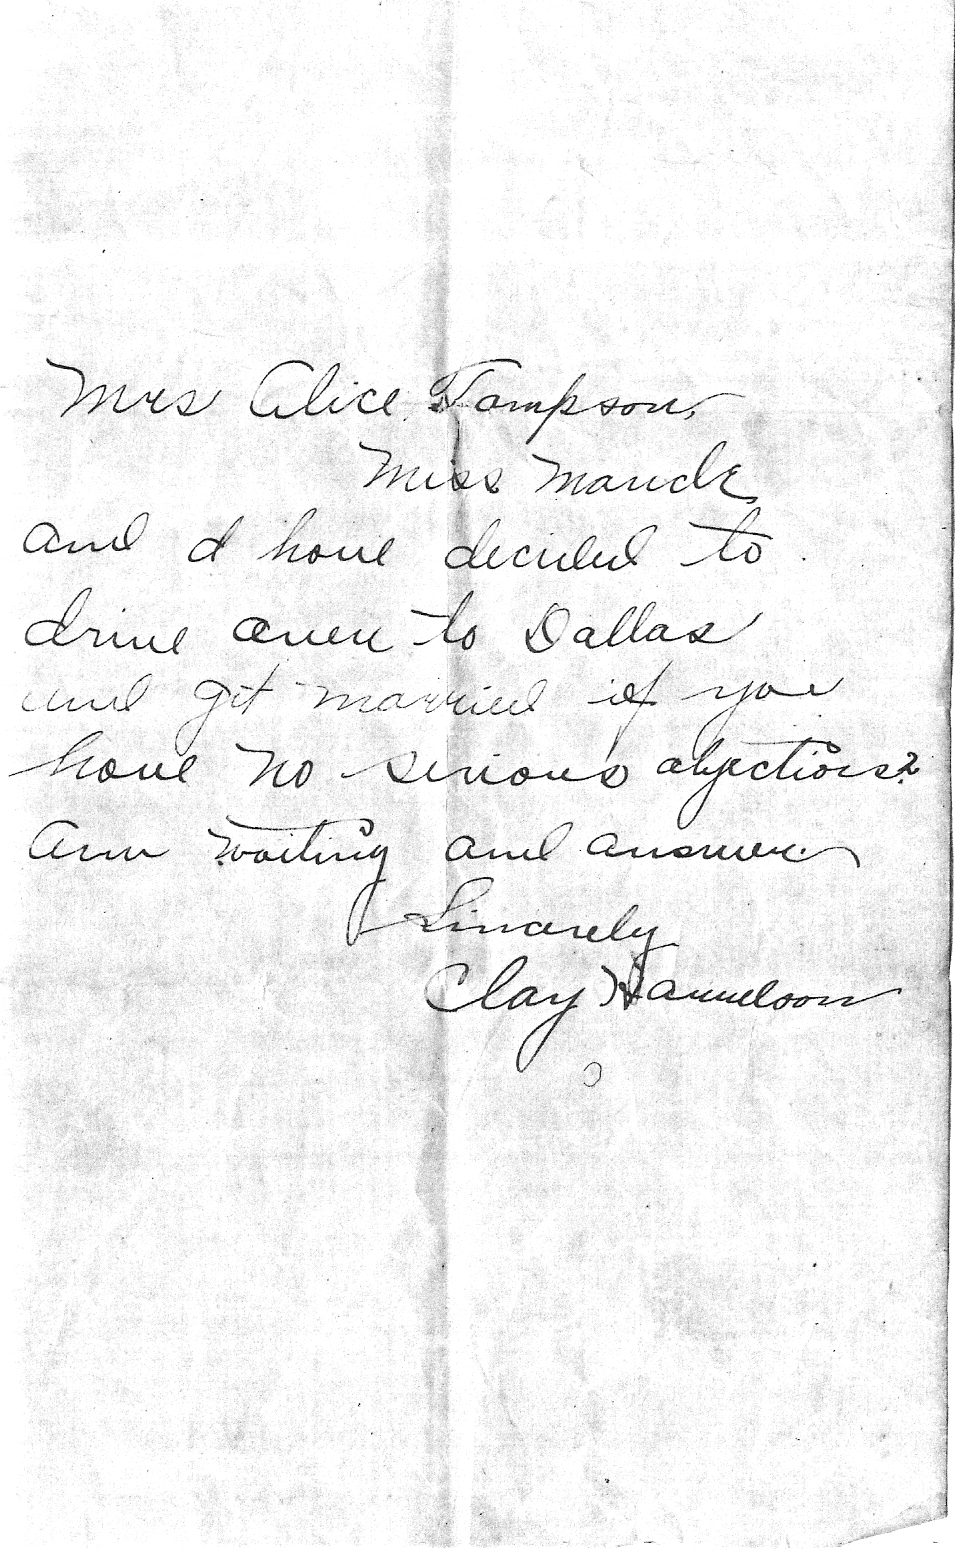 Mrs Alice Tompson,
Miss Maude
and I have decided to
drive over to Dallas
and get married if you
have no serious objections?
Am waiting and answer
Sincerely
Clay